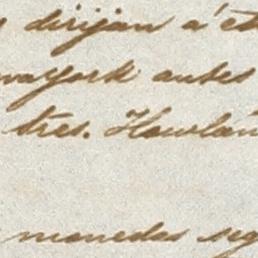 dirijan a' et
vayork antes
tres. Howlan
monedas seg